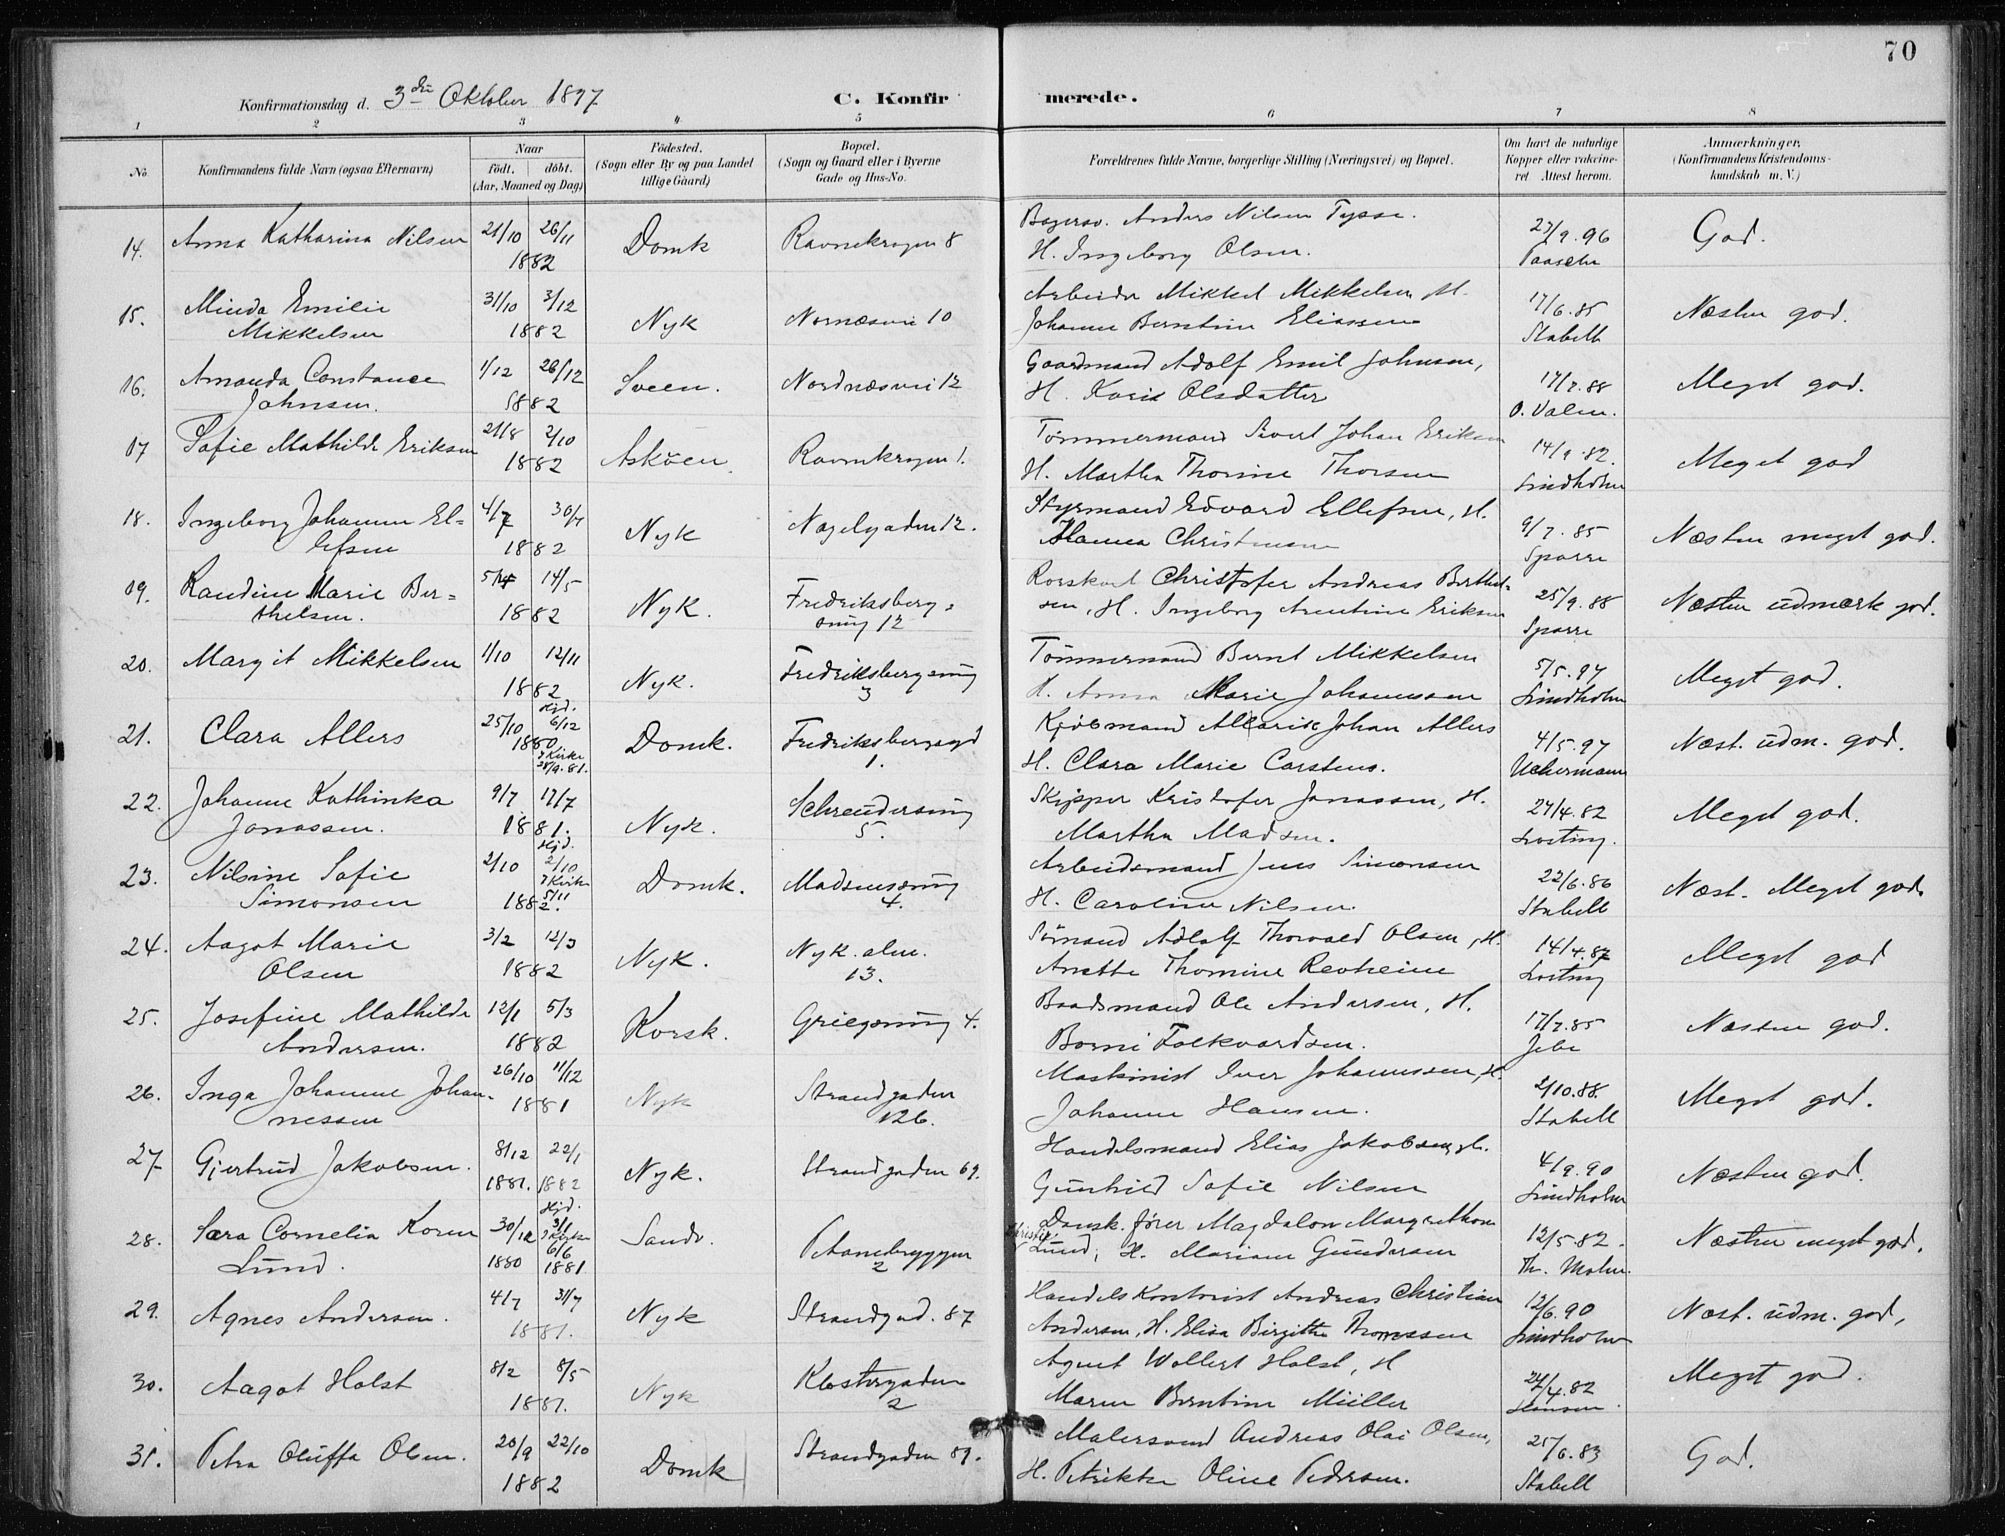 70
Konfirmationsdag d. 3die Oktober 1897
C. Konfirmerede.
1 2 3 4 5 6 7 8
No.
Konfirmandens fulde Navn (ogsaa Efternavn)
Naar
født. døbt.
(Aar, Maaned og Dag)
Fødested.
(Sogn eller By og paa Landet
tillige Gaard)
Bopæl.
(Sogn og Gaard eller i Byerne
Gade og Hus-No.
Forældrenes fulde Navne, borgerlige Stilling (Næringsvei) og Bopæl.
Om havt de naturlige
Kopper eller vakcine-
ret Attest herom.
Anmærkninger.
(Konfirmandens Kristendoms-
kundskab m. V.)
14. Anna Katharina Nilsen 21/10 26/11 Domk Ravnekrogen 8 Anders Nilsen Tysse. 23/9.96 God.
1882 H. Ingeborg Olsen. Paasche
15. Minda Emilie 31/10 3/12 Nyk Nornæsvei 10 Arbeider Mikkel Mikkelsen, H. 17/6.85 Næsten god.
Mikkelsen 1882 Johanne Berntine Eliassen Stabell
16. Amanda Constance 1/12 26/12 Sveen. Nordnæsvei 12 Gaardmand Adolf Emil Johnsen, 17/7.88 Meget god.
Johnsen. 1882 H. Kari Olsdatter O. Valen.
17 Sofie Mathilde Eriksen 21/8 2/10 Askøen. Ravnekrogen 1. Tømmermand Sivert Johan Eriksen 14/9.82. Meget god
1882 H. Martha Thorine Thorsen Lindholm
18. Ingeborg Johanne El= 4/7 30/7 Nyk Nagelgaden 12. Styrmand Edvard Ellefsen, H. 9/7.85 Næsten meget god.
lefsen 1882 Hanna Christensen Sparre
19. Randine Marie Ber= 5/4 14/5 Nyk. Fredriksberg= Christofer Andreas Berthel- 25/9.88 Næsten udmærk god.
thelsen. 1882 smug 12 sen, H. Ingeborg Arentine Eriksen Sparre
20. Margit Mikkelsen 1/10 12/11 Nyk. Fredriksbergsmug Tömmermand Bernt Mikkelsen 5/5.97 Meget god.
1882 3 H. Anna Marie Johannessen Lindholm
21. Clara Allers 25/10 Hjd. 6/12 Domk. Fredriksbergsgd Kjøbmand Johan Allers 4/5.97 Næst. udm. god.
1880 I Kirke 21/9.81. 1. H. Clara Marie Carstens. Uchermann
22. Johanne Kathinka 9/7 17/7 Nyk. Schreudersmug Skipper Kristofer Jonassen, H. 27/4.82 Meget god.
Jonassen. 1881. 5. Martha Madsen. Lvsting.
23. Nilsine Sofie 2/10 Hjd. 2/10 Domk. Madsensmug Arbeidsmand Jens Simonsen 22/6.86 Næst. Meget god
Simonsen 1882. I Kirke 5/11 4. H. Caroline Nilsen. Stabell
24. Aagot Marie 3/2 12/3 Nyk. Nyk. alm. Sømand Adlolf Thorvald Olsen, H. 14/4.87 Meget god
Olsen 1882 13. Anette Thomine Revheim
25. Josefine Mathilde 12/1 5/3 Korsk. Griegsmug 4. Baadsmand Ole Andersen, H. 17/7.85 Næsten god.
Andersen. 1882 Folkvardsen. Jebe
26. Inga Johanne Johan- 26/10 11/12 Nyk Strandgaden Maskinist Iver Johannessen, H. 2/10.88. Meget god.
nessen 1881 126. Johanne Hansen. Stabell
27 Gjertrud Jakobsen. 8/12 22/1 Nyk. Strandgaden 69. Handelsmand Elias Jakobsen, H. 4/9.90 Næsten god.
1881. 1882 Gunhild Sofie Nilsen Lindholm
28. Sara Cornelia Koren 30/12 Hjd. 3/1 Sandv. Dansk. fører Magdalon Margrethon 12/5.82. Næsten meget god.
Lund. 1880 I Kirken 6/6 1881 2 Lund, H. Mariane Gundersen Th. Mohn.
29. Agnes Andersen. 4/7 31/7 Nyk Strandgad. 87 Handels Kontorist Andreas Christian 12/6.90 Næst. udm. god,
1881. Andersen, H. Elisa Birgitte Thomssen Lindholm
30. Aagot Holst 8/2 8/5 Nyk Klostergaden Agent Wollert Holst, H 24/4.82 Meget god.
1881. 2 Maren Berntine Müller Hansen
31. Petra Oluffa Olsen. 20/9 22/10 Domk Strandgaden 89. Malersvend Andreas Olai Olsen, 25/6.83 God.
1882 H. Petrikke Oline Pedersen. Stabell